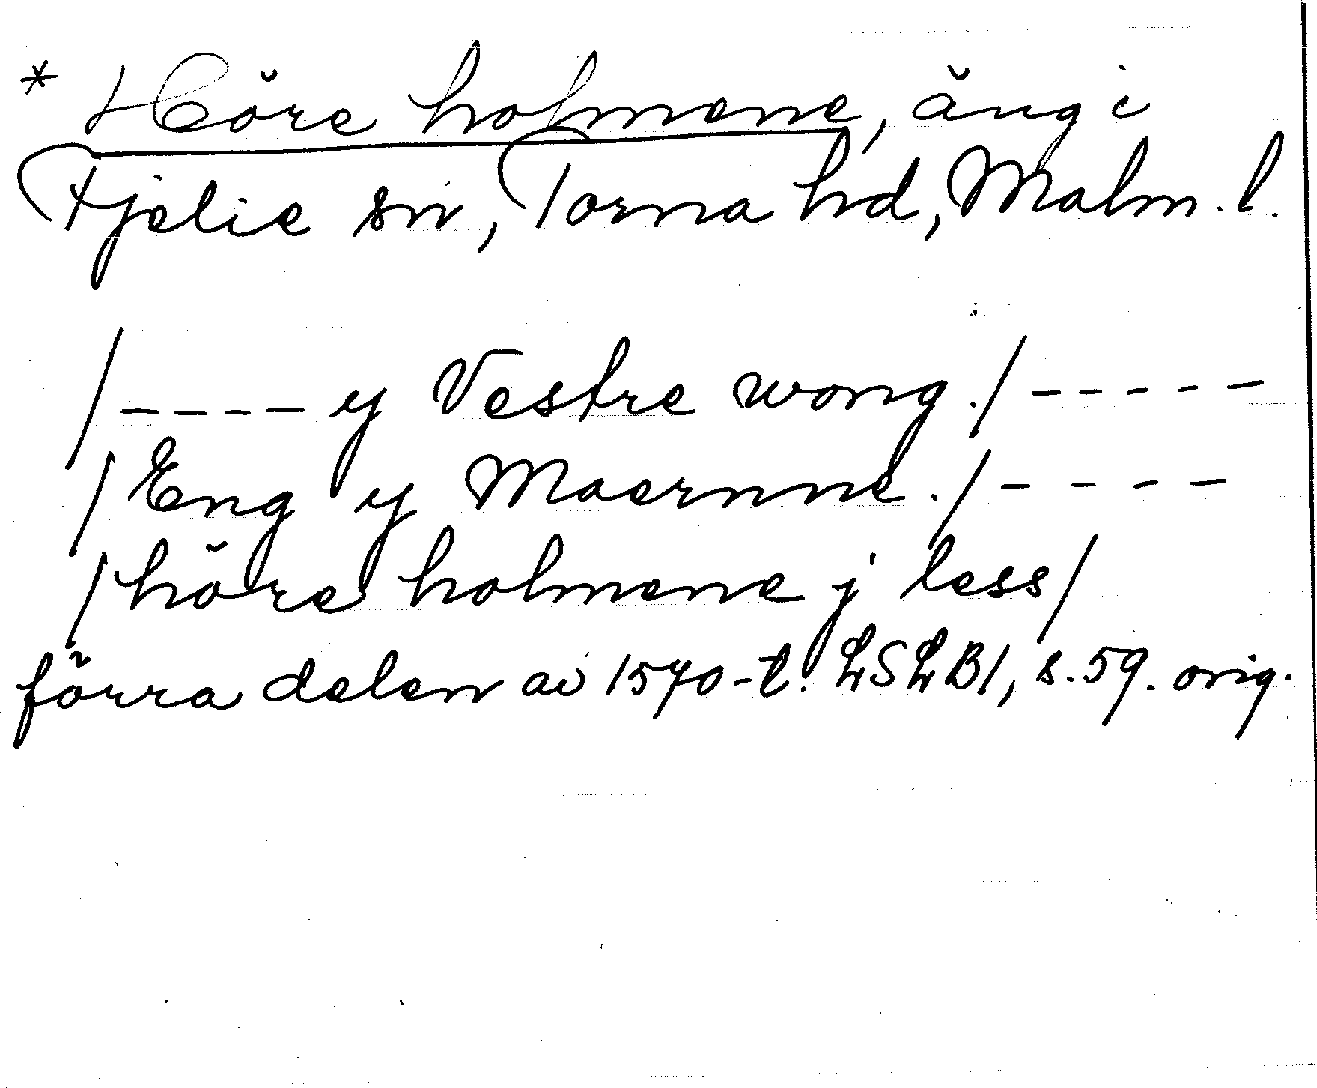 * Höre holmene, äng i
Fjelie sn, Torna hd, Malm. l.
/---- y Vestre wong./-----
/Eng y Maernne./----
/höre holmene j less/
förra delen av 1570-t. LSLB1, s.59. orig.